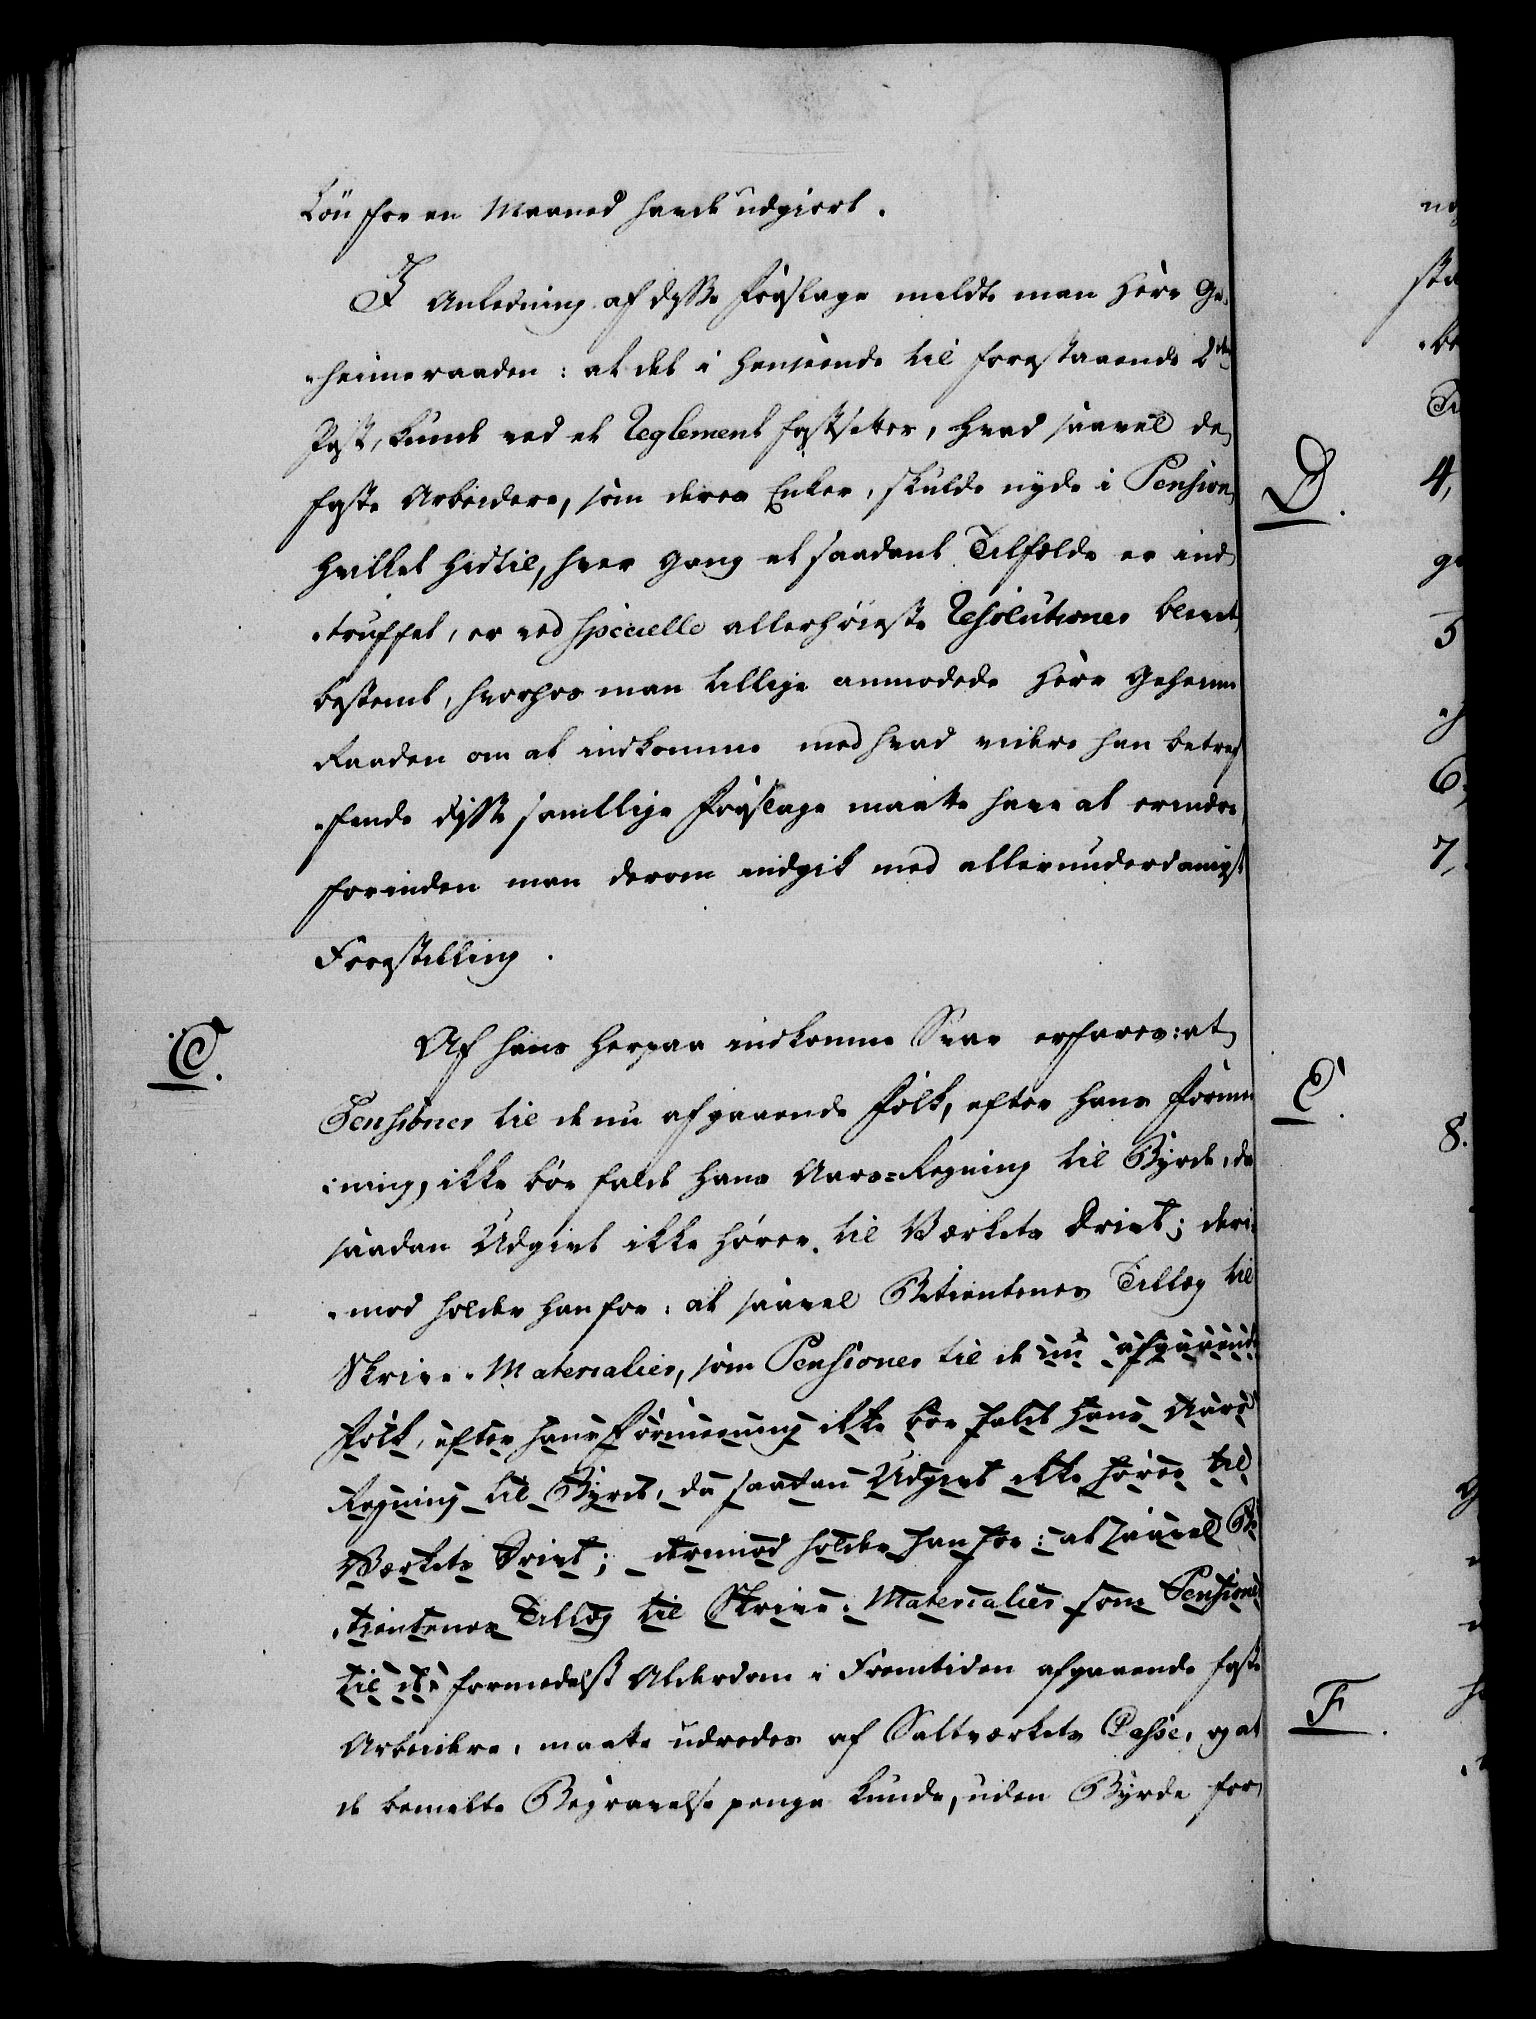 Løn for en Maaned havde udgiort.
I Anledning af disse Forslage meldte man Herr Ge-
heimeraaden: at det i Henseende til forestaaende 2den
Post, kunde ved et Reglement fastsættes, hvad saavel de
faste Arbeidere, som deres Enker, skulde nyde i Pension,
hvilket hidtil, hver Gang et saadant Tilfælde er ind-
truffet, er ved specielle allerhøieste Resolutioner blevet
bestemt, hvorhos man tillige anmodede Herr Geheime
Raaden om at indkomme med hvad videre han betref-
fende disse samtlige Forslage maatte have at erindre,
forinden man derom indgik med allerunderdanigst
Forestilling.
C.
Af hans herpaa indkomne Svar erfares: at
Pensioner til de nu afgaaende Folk, efter hans Formee-
ning, ikke bør falde hans Aars-Regning til Byrde, da
saadan Udgivt ikke hører til Værkets Drivt; deri-
mod holder han for: at saavel Betienternes Tillæg til
Skrive-Materialier, som Pensioner til de nu afgaaende
Folk, efter hans Formeening ikke bør falde hans Aars
Regning til Byrde, da saadan Udgivt ikke hører til
Værkets Drivt; derimod holder han for: at saavel Be-
tienternes Tillæg til Skrive-Materialier som Pensioner
til de formedelst Alderdom i Fremtiden afgaaende faste
Arbeidere, maatte udredes af Saltværkets Casse, og at
de bemelte Begravelsepenge kunde, uden Byrde for
D.
E.
F.
4,
5
6,
7,
8.